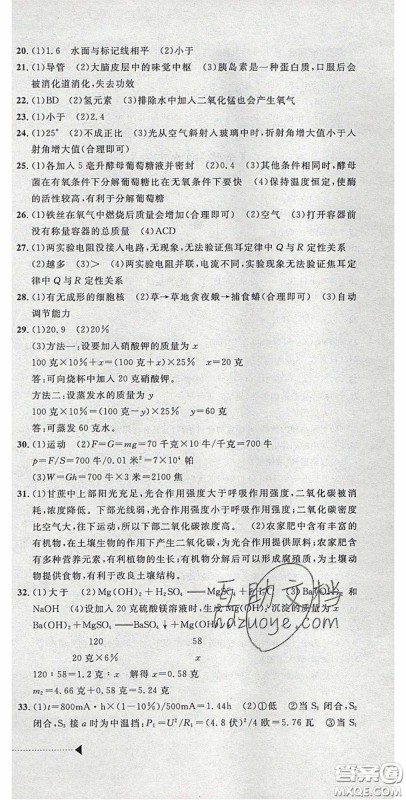 20. (1)1.6　水面与标记线相平　(2)小于
21. (1)导管　(2)大脑皮层中的味觉中枢　(3)胰岛素是一种蛋白质,口服后会
被消化道消化,失去功效
22. (1)BD　(2)氢元素　(3)排除水中加入二氧化锰也会产生氧气
23. (1)小于　(2)2.4
24. (1)25°　(2)不成正比　(3)光从空气斜射入玻璃中时,折射角增大值小于入
射角增大值(合理即可)
25. (1)各加入5毫升酵母葡萄糖液并密封　(2)0.4　(3)其他条件相同时,酵母
菌在有氧条件下分解葡萄糖比在无氧条件下分解葡萄糖,恒定温度高,使酶
的活性较高,有利于分解葡萄糖(合理即可)
26. (1)铁丝在氧气中燃烧后质量会增加(合理即可)　(2)空气　(3)打开容器前
整个容器的总质量　(4)ACD
27. (1)两实验电阻没接入电路,无现象,无法验证焦耳定律中Q与R定性关系
(2)越多　(3)＞　(4)两实验电阻并联,电流不同,实验现象相同,无法验证焦
耳定律中Q与R定性关系
28. (1)有无成形的细胞核　(2)草→草地贪夜蛾→捕食蝽(合理即可)　(3)自动
调节能力
29. (1)20.9　(2)20%
(3)方法一:设要加入硝酸钾的质量为x
100克×10%+x=(100克+x)×25%　x=20克
答:可向烧杯中加入20克硝酸钾。
方法二:设蒸发水的质量为y
100克×10%=(100克-y)×25%　y=60克
答:可蒸发60克水。
30. (1)运动　(2)F=G=mg=70千克×10牛/千克=700牛
p=F/S=700牛/0.01米²=7×10⁴帕
(3)W=Gh=700牛×3米=2100焦
31. (1)甘蔗中上部阳光充足,光合作用强度大于呼吸作用强度,二氧化碳被消
耗,浓度下降。下部光线弱,光合作用强度小于呼吸作用强度,二氧化碳密度
比空气大,往下运动,所以下部二氧化碳浓度高。　(2)农家肥中含有丰富的
有机物,在土壤生物的作用下产生二氧化碳,为光合作用提供了原料;农家肥
含有多种营养元素,有利植物的生长;有机物分解后可以形成腐殖质,为土壤
动物提供食物,有利于改良土壤结构。
32. (1)大于　(2)Mg(OH)₂+H₂SO₄═MgSO₄+2H₂O　(3)Ba(OH)₂和
NaOH　(4)设加入20克硫酸镁溶液时,生成Mg(OH)₂沉淀的质量为x
Ba(OH)₂+MgSO₄═BaSO₄↓+Mg(OH)₂↓
120　58
20克×6%　x
120∶58=1.2克∶x　解得x=0.58克
m₂=4.66克-1.16克+0.58克=4.08克
33. (1)t=800mA·h×(1-10%)/400mA=1.8h　(2)①低　②当S₁闭合,S₂
闭合,S₃接a时为中温挡:P₁=U²/R₁=(4.8伏)²/4欧=5.76瓦　(3)当S₁
互助文档
hdzuoye.com
答案圈
MXQE.COM